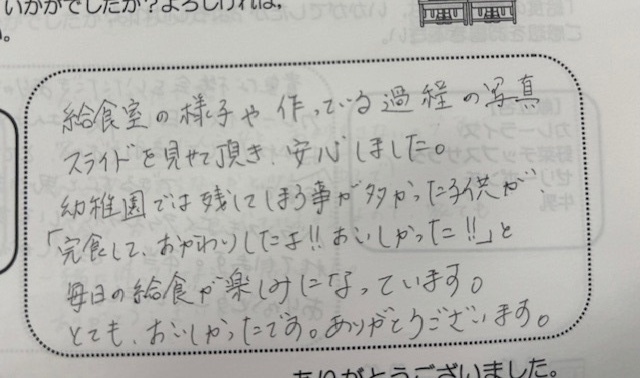 いかがでしたか？よろしければ、
給食室の様子や作っている過程の写真
スライドを見せて頂き、安心しました。
幼稚園では残してしまう事が多かった子供が、
「完食して、おかわりしたよ!!おいしかった!!」と
毎日の給食が楽しみになっています。
とても、おいしかったです。ありがとうございます。
ありがとうございました。